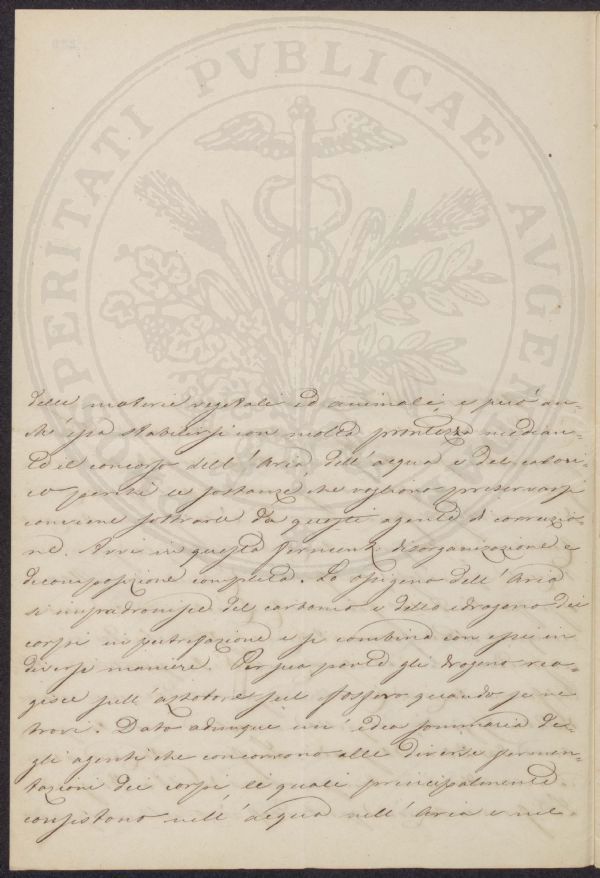 PROSPERITATI PVBLICAE AVGENDAE
delle materie vegetali ed animali, e però an-
ch'essa stabilersi con molta prontezza median-
te il concorso dell'Aria, dell'acqua e del calori-
co perchè le sostanze, che vogliono preservarsi
conviene sottrarle da questi agenti di corruzio-
ne. Avvi in questa ferment. disorganizazione e
decomposizione completa. Lo ossigeno dell'Aria
si impadronisce del carbonio e dello idrogeno dei
corpi in putrefazione e si combina con essi in
diverse maniere. Per sua parte gli drogeno rea-
gisce sull'azoto e sul fosforo quando se ne
trovi. Dato adunque un'idea sommaria de-
gli agenti che concorrono alle diverse fermen-
tazioni dei corpi le quali principalmente
consistono nell'acqua nell'Aria e nel